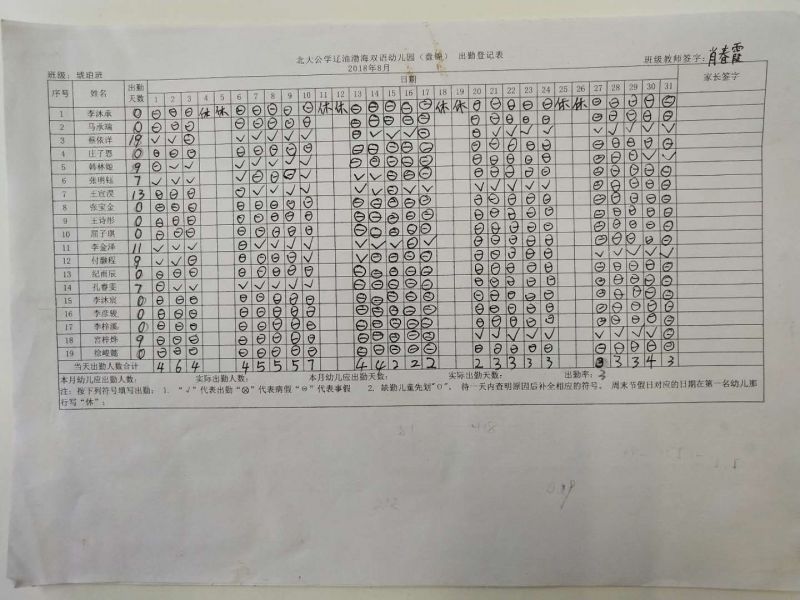 北大公学辽油渤海双语幼儿园（盘锦） 出勤登记表
2018年8月
班级：琥珀班 班级教师签字：肖春霞
序号 姓名 出勤天数 日期 家长签字
1 2 3 4 5 6 7 8 9 10 11 12 13 14 15 16 17 18 19 20 21 22 23 24 25 26 27 28 29 30 31
1 李沐承 0 休 休 休 休 休 休 休 休
2 马承瑞 0
3 蔡依洋 19
4 庄子恩 0
5 韩林姬 9
6 张明钰 7
7 王宣淏 13
8 张宝金 0
9 王诗彤 0
10 屈子琪 0
11 李金泽 11
12 付翰程 9
13 纪雨辰 0
14 孔春雯 7
15 李沐宸 0
16 李彦骏 0
17 李梓溪 0
18 宫梓烨 9
19 徐峻懿 0
当天出勤人数合计 4 6 4 4 5 5 5 7 4 4 2 2 2 2 3 3 3 3 3 3 4 3
本月幼儿应出勤人数： 实际出勤人数： 本月幼儿应出勤天数： 实际出勤天数： 出勤率：3
注：按下列符号填写出勤：1.“√”代表出勤“⊗”代表病假“⊖”代表事假 2.缺勤儿童先划“O”，待一天内查明原因后补全相应的符号。周末节假日对应的日期在第一名幼儿那
行写“休”；